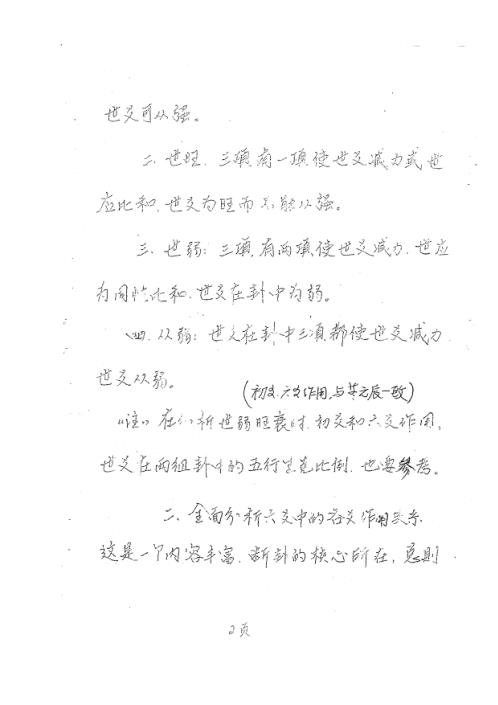 世爻可从强。
二、世旺：三项有一项使世爻减力或世
应比和，世爻为旺而不能从强。
三、世弱：三项有两项使世爻减力，世应
为同性比和，世爻在卦中为弱。
四、从弱：世爻在卦中三项都使世爻减力
世爻从弱。
(初爻、六爻作用，与其元辰一致)
“注”在分析世弱旺衰时，初爻和六爻作用，
世爻在两组卦中的五行生克比例，也要参考。
二、全面分析六爻中的各爻作用关系
这是一个内容丰富，断卦的核心所在，总则
2页